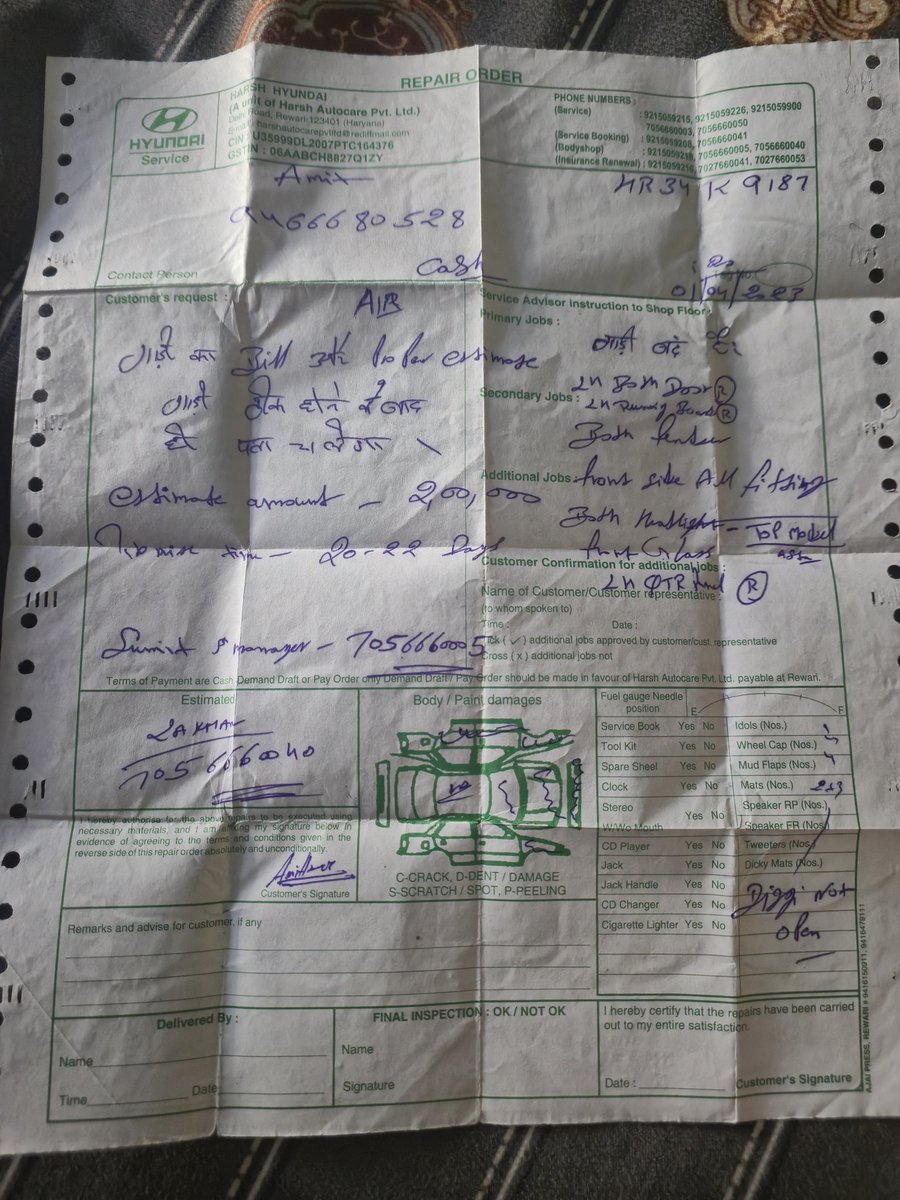 REPAIR ORDER
HYUNDAI
Service
HARSH HYUNDAI
(A unit of Harsh Autocare Pvt. Ltd.)
Delhi Road, Rewari-123401 (Haryana)
E-mail : harshautocarepvtltd@rediffmail.com
CIN : U35999DL2007PTC164376
GSTIN : 06AABCH8827Q1ZY
PHONE NUMBERS :
(Service) : 9215059215, 9215059226, 9215059900
7056660003, 7056660050
(Service Booking) : 9215059208, 7056660041
(Bodyshop) : 9215059218, 7056660005, 7056660040
(Insurance Renewal) : 9215059216, 7027660041, 7027660053
Amit
9466680528
HR34 K 9187
Cash
Contact Person
01/04/2023
Customer's request :
गाड़ी का Bill और Proper estimate
गाड़ी ठीक होने के बाद
ही पता चलेगा
estimate amount - 2,00,000
Promise time - 20-22 Days
Sumit S manager - 7056660005
Service Advisor instruction to Shop Floor :
Primary Jobs :
गाड़ी बंद है
Secondary Jobs :
LH Both Door R
LH Running Board R
Both fender
Additional Jobs :
front side All fitting
Both Headlight - Top Model
front Glass
Customer Confirmation for additional jobs :
LH QTR Panel R
Name of Customer/Customer representative :
(to whom spoken to)
Time : Date :
Tick ( ✓ ) additional jobs approved by customer/cust. representative
Cross ( x ) additional jobs not
Terms of Payment are Cash Demand Draft or Pay Order only Demand Draft / Pay Order should be made in favour of Harsh Autocare Pvt. Ltd. payable at Rewari.
Estimated
7056660040
I hereby authorise for the above repairs to be executed using
necessary materials, and I am making my signature below in
evidence of agreeing to the terms and conditions given in the
reverse side of this repair order absolutely and unconditionally.
Customer's Signature
Body / Paint damages
C-CRACK, D-DENT / DAMAGE
S-SCRATCH / SPOT, P-PEELING
Fuel gauge Needle
position E F
Service Book Yes No Idols (Nos.)
Tool Kit Yes No Wheel Cap (Nos.)
Spare Sheel Yes No Mud Flaps (Nos.)
Clock Yes No Mats (Nos.)
Stereo Yes No Speaker RP (Nos.)
W/Wo Mouth Speaker FR (Nos.)
CD Player Yes No Tweeters (Nos.)
Jack Yes No Dicky Mats (Nos.)
Jack Handle Yes No
CD Changer Yes No
Cigarette Lighter Yes No
Diggi Not
open
Remarks and advise for customer, if any
Delivered By :
Name
Time Date
FINAL INSPECTION : OK / NOT OK
Name
Signature
I hereby certify that the repairs have been carried
out to my entire satisfaction.
Date : Customer's Signature
AJAI PRESS, REWARI # 9416150911, 9416479111